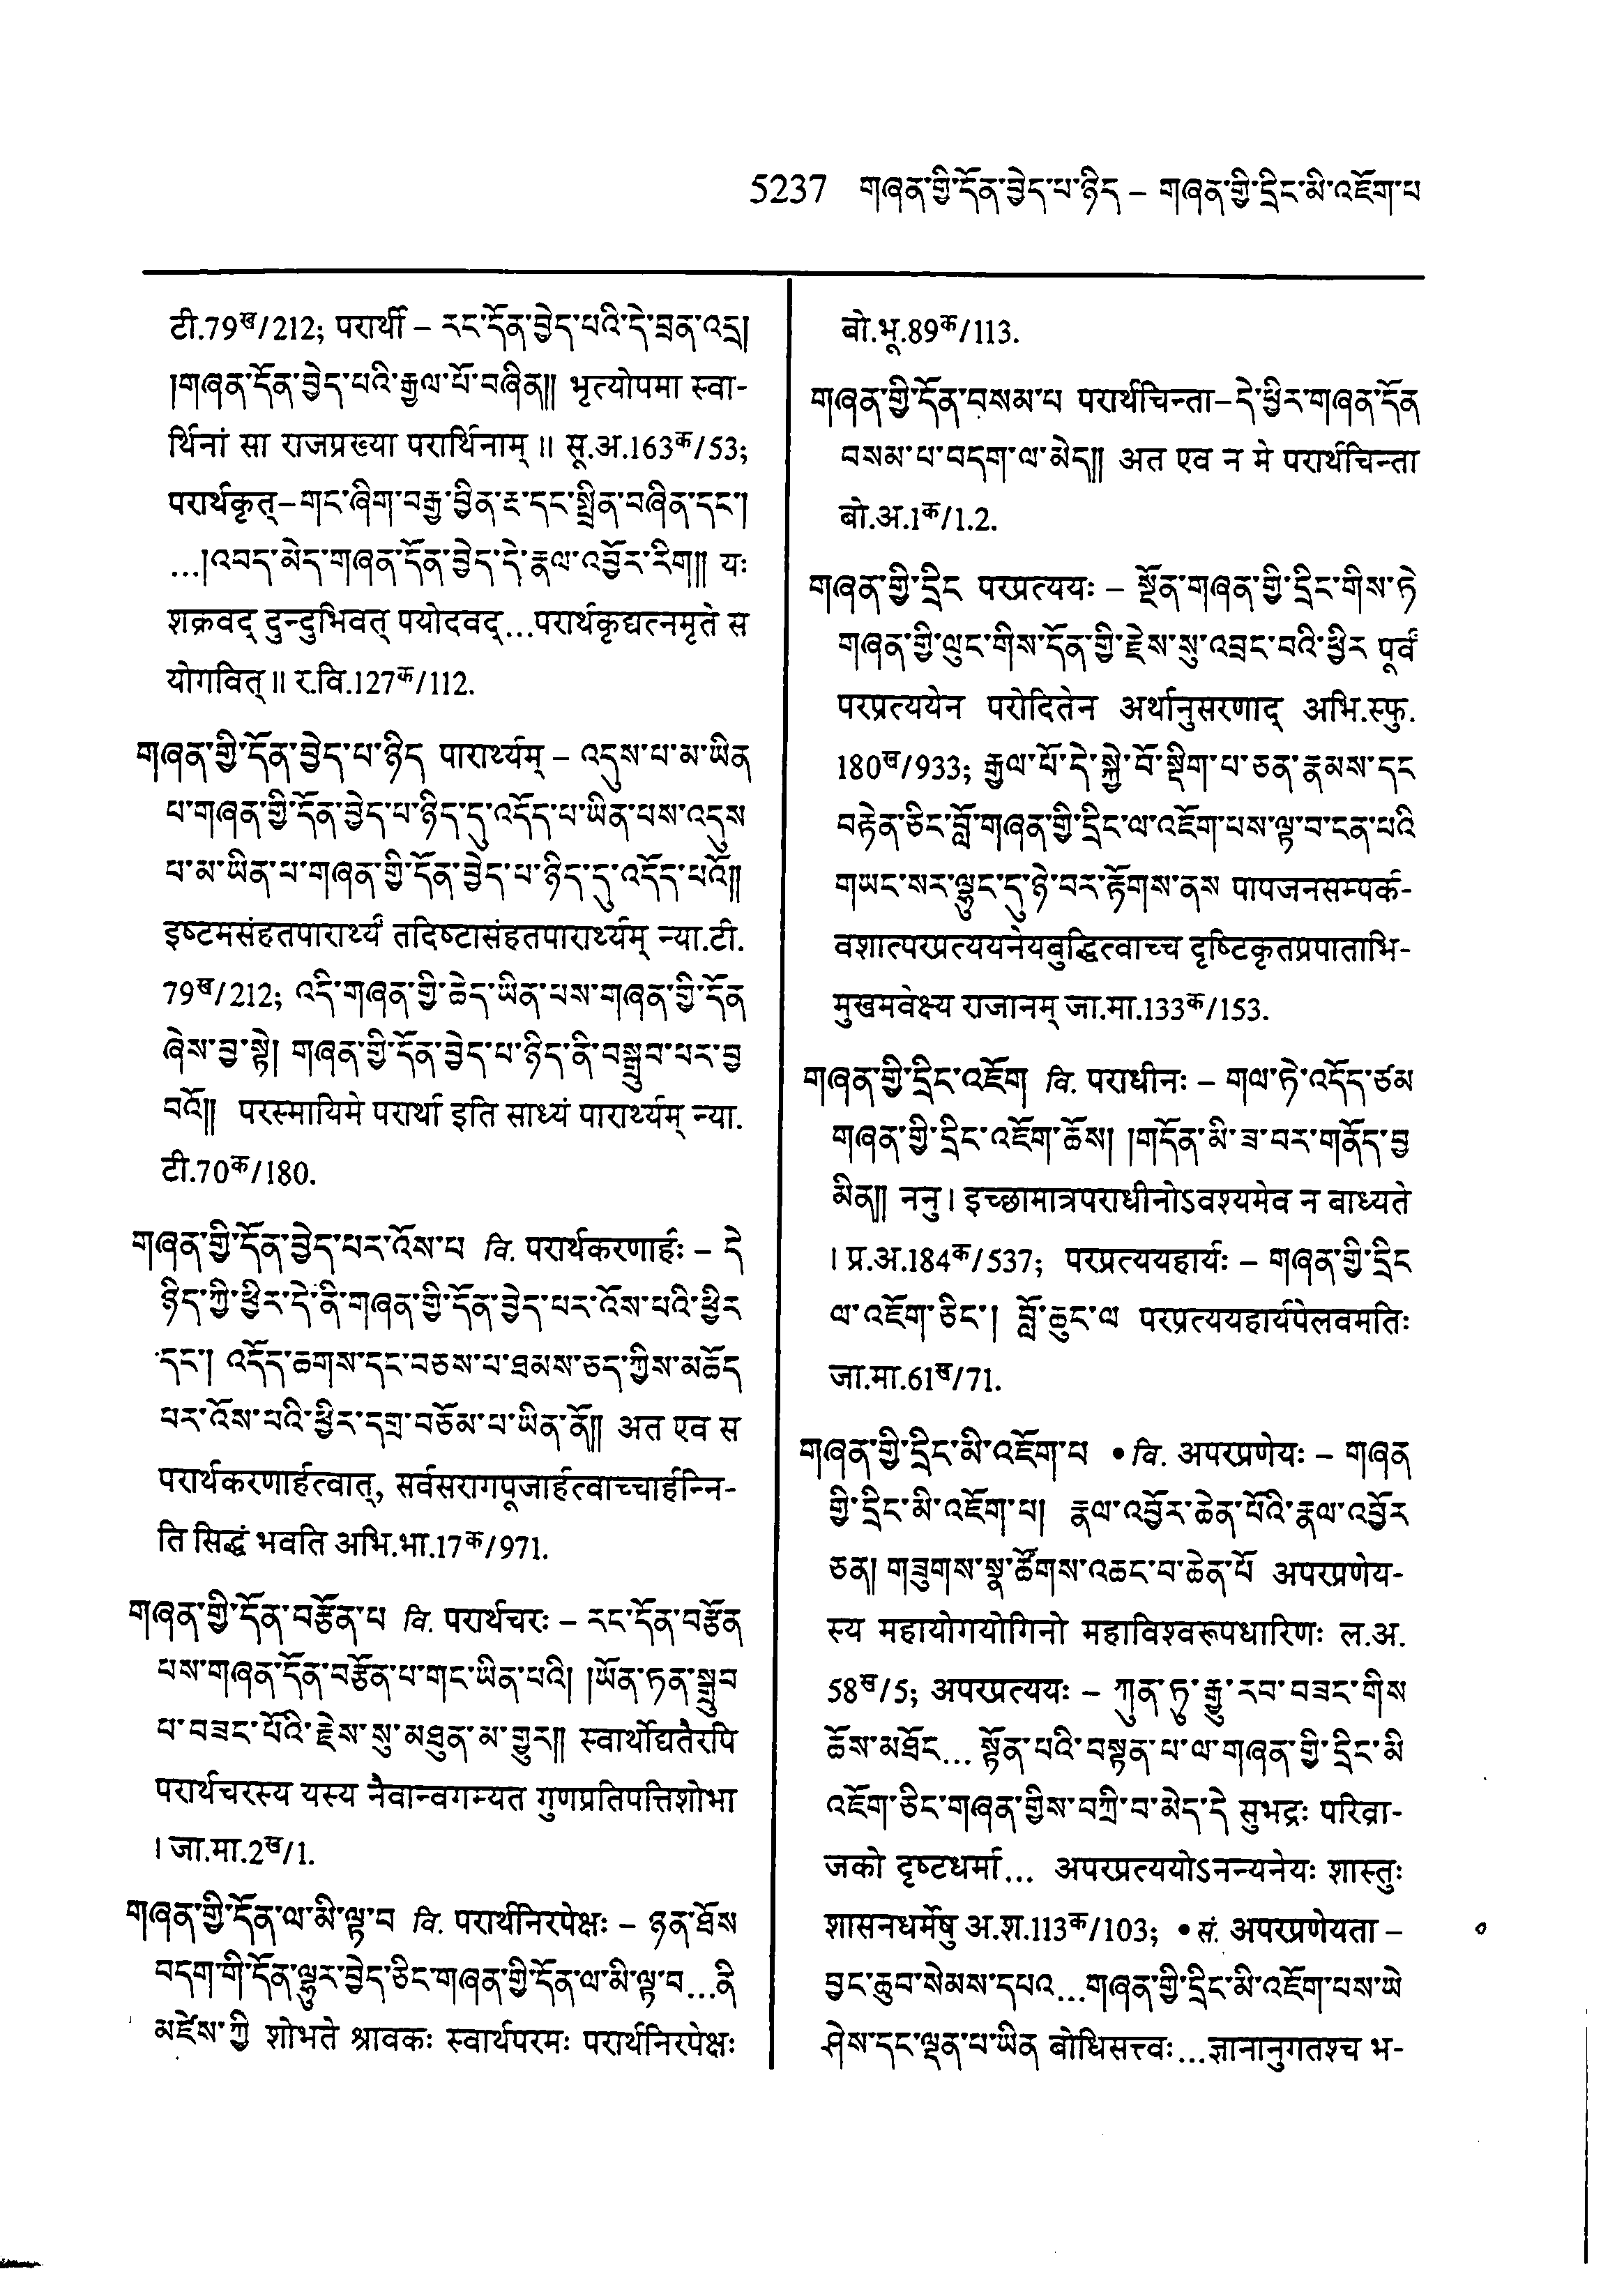 5237 གཞན་གྱི་དོན་བྱེད་པ་ཉིད – གཞན་གྱི་དྲིང་མི་འཇོག་པ
टी.79ख/212; परार्थी – རང་དོན་བྱེད་པའི་དེ་བྲན་འདྲ།
།གཞན་དོན་བྱེད་པའི་རྒྱལ་པོ་བཞིན།། भृत्योपमा स्वा-
र्थिनां सा राजप्रख्या परार्थिनाम् ॥ सू.अ.163क/53;
परार्थकृत्–གང་ཞིག་བརྒྱ་བྱིན་རྔ་དང་སྤྲིན་བཞིན་དང་།
...།འབད་མེད་གཞན་དོན་བྱེད་དེ་རྣལ་འབྱོར་རིག།། यः
शक्रवद् दुन्दुभिवत् पयोदवद्...परार्थकृद्यत्नमृते स
योगवित् ॥ र.वि.127क/112.
གཞན་གྱི་དོན་བྱེད་པ་ཉིད पारार्थ्यम् – འདུས་པ་མ་ཡིན
པ་གཞན་གྱི་དོན་བྱེད་པ་ཉིད་དུ་འདོད་པ་ཡིན་པས་འདུས
པ་མ་ཡིན་པ་གཞན་གྱི་དོན་བྱེད་པ་ཉིད་དུ་འདོད་པའོ།།
इष्टमसंहतपारार्थ्यं तदिष्टासंहतपारार्थ्यम् न्या.टी.
79ख/212; འདི་གཞན་གྱི་ཆེད་ཡིན་པས་གཞན་གྱི་དོན
ཞེས་བྱ་སྟེ། གཞན་གྱི་དོན་བྱེད་པ་ཉིད་ནི་བསྒྲུབ་པར་བྱ
བའོ།། परस्मायिमे परार्था इति साध्यं पारार्थ्यम् न्या.
टी.70क/180.
གཞན་གྱི་དོན་བྱེད་པར་འོས་པ वि. परार्थकरणार्हः – དེ
ཉིད་ཀྱི་ཕྱིར་དེ་ནི་གཞན་གྱི་དོན་བྱེད་པར་འོས་པའི་ཕྱིར
དང་། འདོད་ཆགས་དང་བཅས་པ་ཐམས་ཅད་ཀྱིས་མཆོད
པར་འོས་པའི་ཕྱིར་དགྲ་བཅོམ་པ་ཡིན་ནོ།། अत एव स
परार्थकरणार्हत्वात्, सर्वसरागपूजार्हत्वाच्चार्हन्नि-
ति सिद्धं भवति अभि.भा.17क/971.
གཞན་གྱི་དོན་བརྩོན་པ वि. परार्थचरः – རང་དོན་བརྩོན
པས་གཞན་དོན་བརྩོན་པ་གང་ཡིན་པའི། །ཡོན་ཏན་སྒྲུབ
པ་བཟང་པོའི་རྗེས་སུ་མཐུན་མ་གྱུར།། स्वार्थोद्यतैरपि
परार्थचरस्य यस्य नैवान्वगम्यत गुणप्रतिपत्तिशोभा
। जा.मा.2ख/1.
གཞན་གྱི་དོན་ལ་མི་ལྟ་བ वि. परार्थनिरपेक्षः – ཉན་ཐོས
བདག་གི་དོན་ལྷུར་བྱེད་ཅིང་གཞན་གྱི་དོན་ལ་མི་ལྟ་བ...ནི
མཛེས་ཀྱི शोभते श्रावकः स्वार्थपरमः परार्थनिरपेक्षः
बो.भू.89क/113.
གཞན་གྱི་དོན་བསམ་པ परार्थचिन्ता–དེ་ཕྱིར་གཞན་དོན
བསམ་པ་བདག་ལ་མེད།། अत एव न मे परार्थचिन्ता
बो.अ.1क/1.2.
གཞན་གྱི་དྲིང परप्रत्ययः – སྔོན་གཞན་གྱི་དྲིང་གིས་ཏེ
གཞན་གྱི་ལུང་གིས་དོན་གྱི་རྗེས་སུ་འབྲང་བའི་ཕྱིར पूर्वं
परप्रत्ययेन परोदितेन अर्थानुसरणाद् अभि.स्फु.
180ख/933; རྒྱལ་པོ་དེ་སྐྱེ་བོ་སྡིག་པ་ཅན་རྣམས་དང
བརྟེན་ཅིང་བློ་གཞན་གྱི་དྲིང་ལ་འཇོག་པས་ལྟ་བ་ངན་པའི
གཡང་སར་ལྷུང་དུ་ཉེ་བར་རྟོགས་ནས पापजनसम्पर्क-
वशात्परप्रत्ययनेयबुद्धित्वाच्च दृष्टिकृतप्रपाताभि-
मुखमवेक्ष्य राजानम् जा.मा.133क/153.
གཞན་གྱི་དྲིང་འཇོག वि. पराधीनः – གལ་ཏེ་འདོད་ཙམ
གཞན་གྱི་དྲིང་འཇོག་ཆོས། །གདོན་མི་ཟ་བར་གནོད་བྱ
མིན།། ननु । इच्छामात्रपराधीनोऽवश्यमेव न बाध्यते
। प्र.अ.184क/537; परप्रत्ययहार्यः – གཞན་གྱི་དྲིང
ལ་འཇོག་ཅིང་། བློ་ཆུང་ལ परप्रत्ययहार्यपेलवमतिः
जा.मा.61ख/71.
གཞན་གྱི་དྲིང་མི་འཇོག་པ • वि. अपरप्रणेयः – གཞན
གྱི་དྲིང་མི་འཇོག་པ། རྣལ་འབྱོར་ཆེན་པོའི་རྣལ་འབྱོར
ཅན། གཟུགས་སྣ་ཚོགས་འཆང་བ་ཆེན་པོ अपरप्रणेय-
स्य महायोगयोगिनो महाविश्वरूपधारिणः ल.अ.
58ख/5; अपरप्रत्ययः – ཀུན་ཏུ་རྒྱུ་རབ་བཟང་གིས
ཆོས་མཐོང... སྟོན་པའི་བསྟན་པ་ལ་གཞན་གྱི་དྲིང་མི
འཇོག་ཅིང་གཞན་གྱིས་བཀྲི་བ་མེད་དེ सुभद्रः परिव्रा-
जको दृष्टधर्मा... अपरप्रत्ययोऽनन्यनेयः शास्तुः
शासनधर्मेषु अ.श.113क/103; • सं. अपरप्रणेयता –
བྱང་ཆུབ་སེམས་དཔའ...གཞན་གྱི་དྲིང་མི་འཇོག་པས་ཡེ
ཤེས་དང་ལྡན་པ་ཡིན बोधिसत्त्वः...ज्ञानानुगतश्च भ-